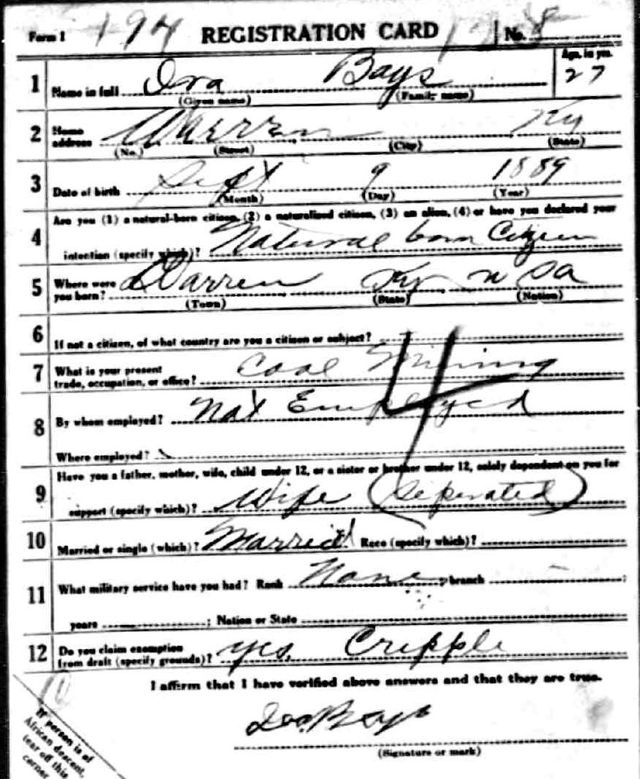 Form 1 194 REGISTRATION CARD No. 8
1 Name in full Ira Bays Age, in yrs. 27
(Given name) (Family name)
2 Home address Warren Ky
(No.) (Street) (City) (State)
3 Date of birth Sept 9 1889
(Month) (Day) (Year)
4 Are you (1) a natural-born citizen, (2) a naturalized citizen, (3) an alien, (4) or have you declared your
intention (specify which)? Natural born Citizen
5 Where were you born? Warren Ky USA
(Town) (State) (Nation)
6 If not a citizen, of what country are you a citizen or subject?
7 What is your present trade, occupation, or office? Coal Mining
8 By whom employed? Not Employed
Where employed?
4
9 Have you a father, mother, wife, child under 12, or a sister or brother under 12, solely dependent on you for
support (specify which)? Wife (Seperated)
10 Married or single (which)? Married Race (specify which)?
11 What military service have you had? Rank None ; branch ;
years ; Nation or State
12 Do you claim exemption from draft (specify grounds)? Yes, Cripple
I affirm that I have verified above answers and that they are true.
Ira Bays
(Signature or mark)
If person is of
African descent,
tear off this
corner